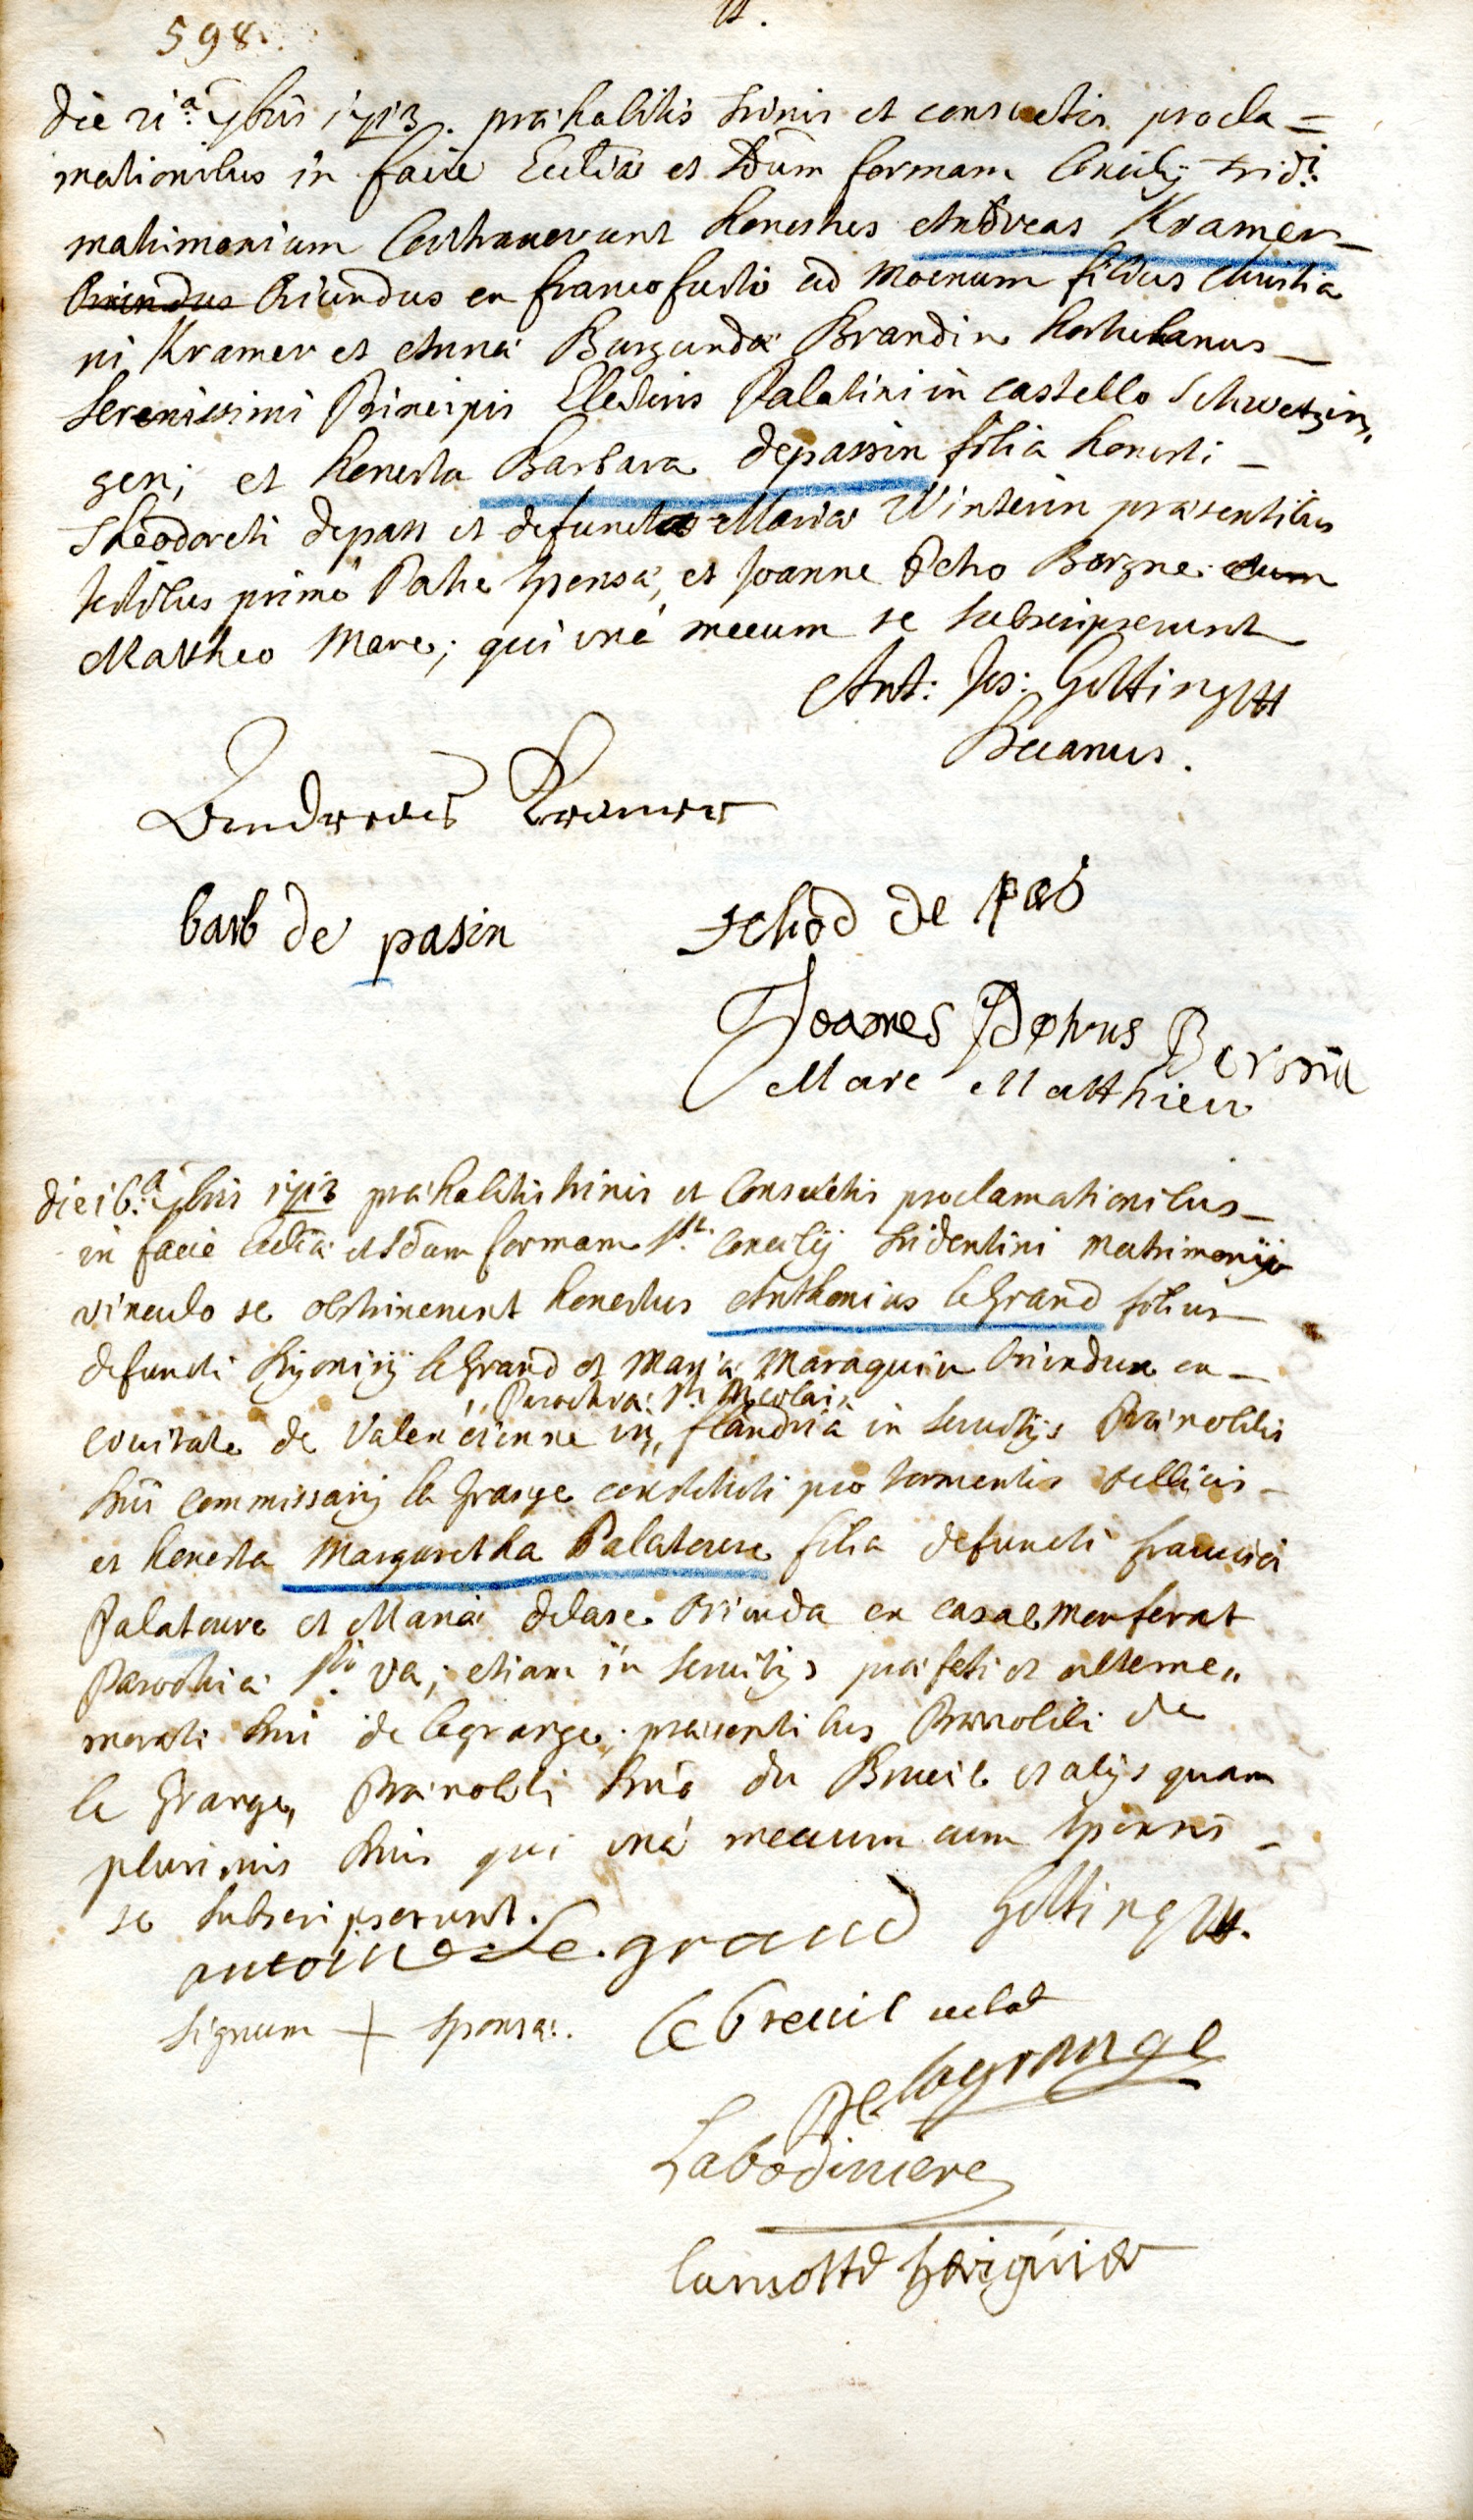 598.
Die 21.a 7bris 1713. præhabitis trinis et consuetis procla=
mationibus in facie Eccliæ et sdum formam Concilij Trid:i
matrimonium Contraxerunt honestus Andreas Kramer
Oriundus Oriundus ex francofurto ad Moenum filius Christia
ni Kramer et Annæ Burgundæ Brandin hortulanus
Serenissimi Principis Electoris Palatini in castello Schwetzin„
gen; et honesta Barbara depassin filia honesti
Theodoreti depass et defunctæ Mariæ Winterin præsentibus
testibus primo Patre sponsæ, et Joanne Petro Borgne cum
Mattheo Mare; qui una mecum se subscripserunt
Ant: Jos: Gölting
Decanus.
Andreas Kramer
barb de pasin
de pas
Joannes Petrus
Marc Matthieu
Die 16.a 7bris 1713 præhabitis trinis et Consuetis proclamationibus
in facie Eccliæ et sdum formam Concilij Tridentini Matrimonij
vinculo se obstrinxerunt honestus Anthonius le Grand filius
defuncti le Grand et Mariæ Maraquin Oriundus ex
Parochia: St. Nicolai
Civitate de Valencienne in„ flandria in servitijs Prænobilis
Dni Commissarij la Grange constituti pro tormentis bellicis
et honesta Margaretha Palateure filia defuncti francisci
Palateure et Mariæ delare Oriunda ex casale Monferat
Parochia Va; etiam in servitijs præfati et
Dni de la grange. præsentibus Prænobili de
la Grange, Prænobili Dno du Breuil et alijs quam
plurimis Dnis qui una mecum cum sponsis
se subscripserunt.
Gölting
antoine Le.grand
Signum + sponsæ.
le breuil
De lagrange
Labodiniere
lamotte